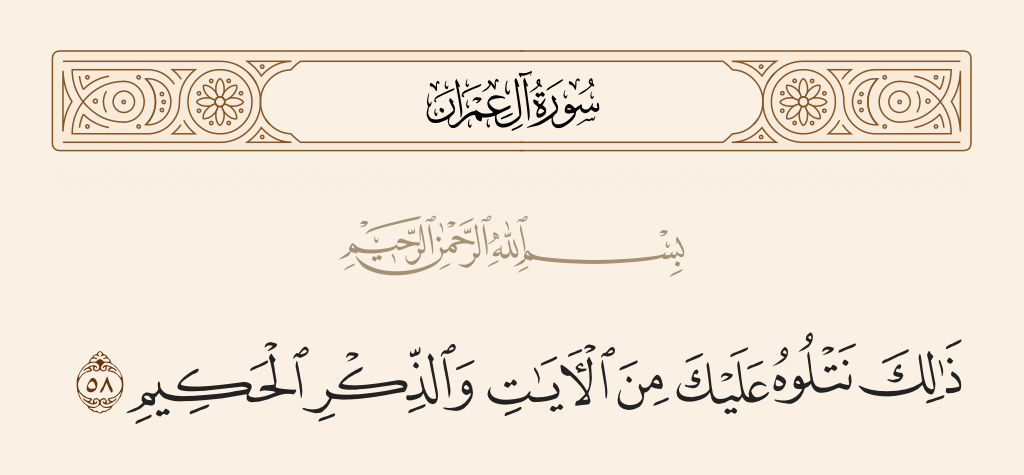 سُورَةُ آلِ عِمْرَان
بِسْمِ ٱللَّهِ ٱلرَّحْمَٰنِ ٱلرَّحِيمِ
ذَٰلِكَ نَتْلُوهُ عَلَيْكَ مِنَ ٱلْآيَـٰتِ وَٱلذِّكْرِ ٱلْحَكِيمِ ٥٨